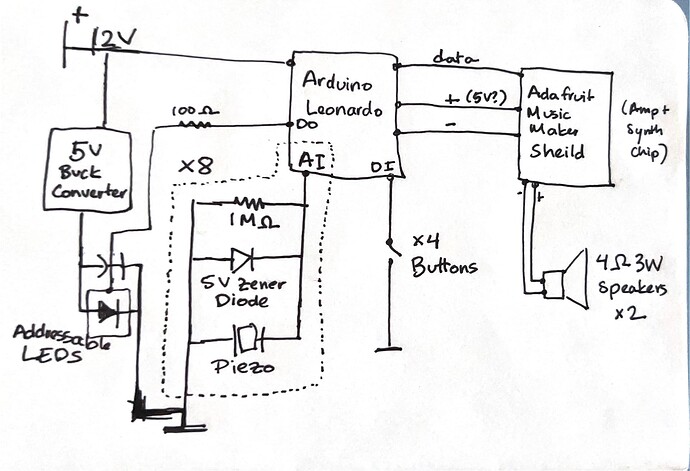 +
12V
Arduino
Leonardo
DO
AI
DI
100Ω
data
+ (5V?)
-
Adafruit
Music
Maker
Sheild
(Amp +
Synth
chip)
- +
5V
Buck
Converter
x8
1MΩ
5V Zener
Diode
Piezo
x4
Buttons
4Ω 3W
Speakers
x2
Addressable
LEDS